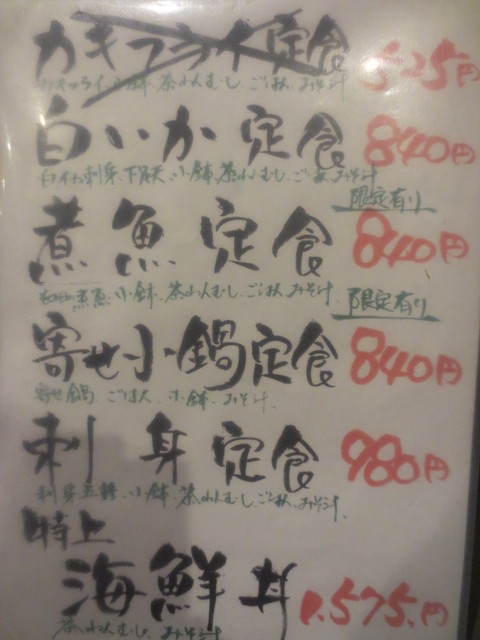 カキフライ定食 525円
カキフライ、小鉢、茶わんむし、ごはん、みそ汁
白いか定食 840円
白イカ刺身、下足天、小鉢、茶わんむし、ごはん、みそ汁
限定有り
煮魚定食 840円
煮魚、小鉢、茶わんむし、ごはん、みそ汁
限定有り
寄せ小鍋定食 840円
寄せ鍋、ごはん、小鉢、みそ汁
刺身定食 980円
刺身五種、小鉢、茶わんむし、ごはん、みそ汁
特上
海鮮丼 1,575円
茶わんむし、みそ汁